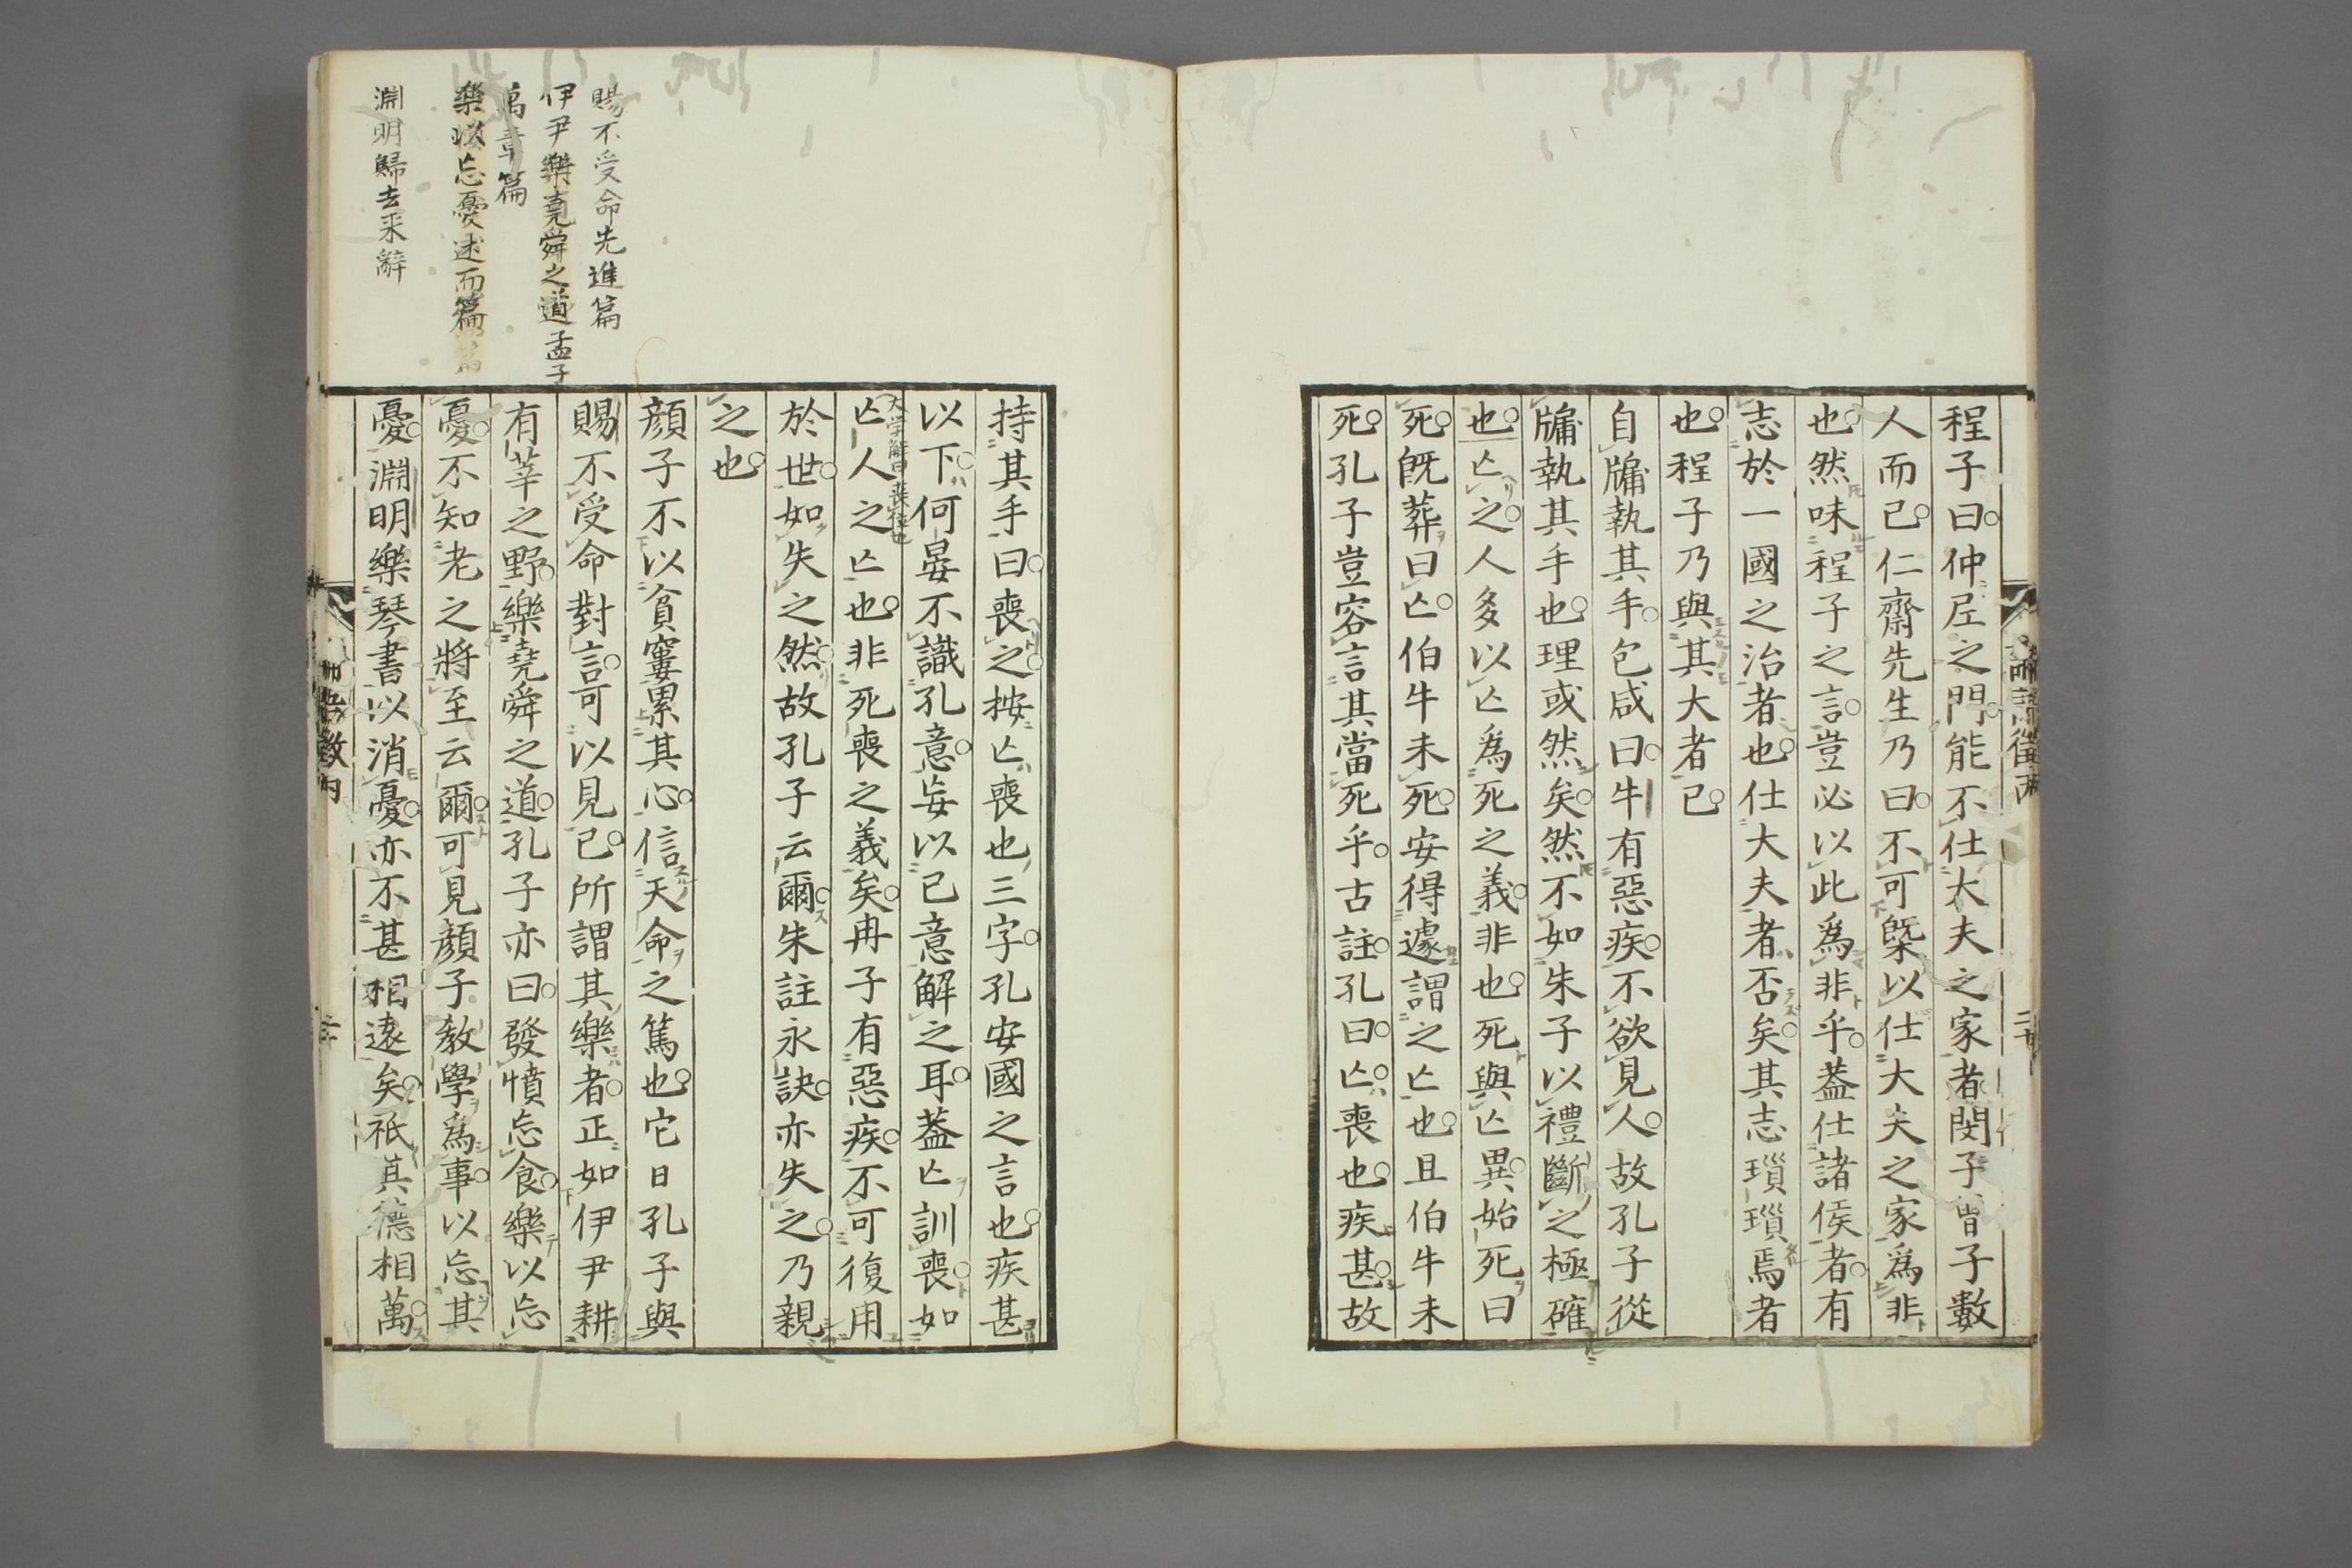 程子曰仲尼之門能不仕大夫之家者閔子曾子數
人而已仁齋先生乃曰不可槩以仕大夫之家爲非
也然味程子之言豈必以此爲非乎葢仕諸侯者有
志於一國之治者也仕大夫者否矣其志瑣瑣焉者
也程子乃與其大者已
自牖執其手包咸曰牛有惡疾不欲見人故孔子從
牖執其手也理或然矣然不如朱子以禮斷之極確
也亡之人多以亡爲死之義非也死與亡異始死曰
死旣葬曰亡伯牛未死安得遽謂之亡也且伯牛未
死孔子豈容言其當死乎古註孔曰亡喪也疾甚故
賜不受命先進篇
伊尹樂堯舜之道孟子
萬章篇
樂以忘憂述而篇
淵明歸去来辭
持其手曰喪之按亡喪也三字孔安國之言也疾甚
以下何晏不識孔意妄以己意解之耳葢亡訓喪如
大学解曰喪位也
亡人之亡也非死喪之義矣冉子有惡疾不可復用
於世如失之然故孔子云爾朱註永訣亦失之乃親
之也
顔子不以貧窶累其心信天命之篤也它日孔子與
賜不受命對言可以見已所謂其樂者正如伊尹耕
有莘之野樂堯舜之道孔子亦曰發憤忘食樂以忘
憂不知老之將至云爾可見顔子教學爲事以忘其
憂淵明樂琴書以消憂亦不甚相遠矣祇其德相萬